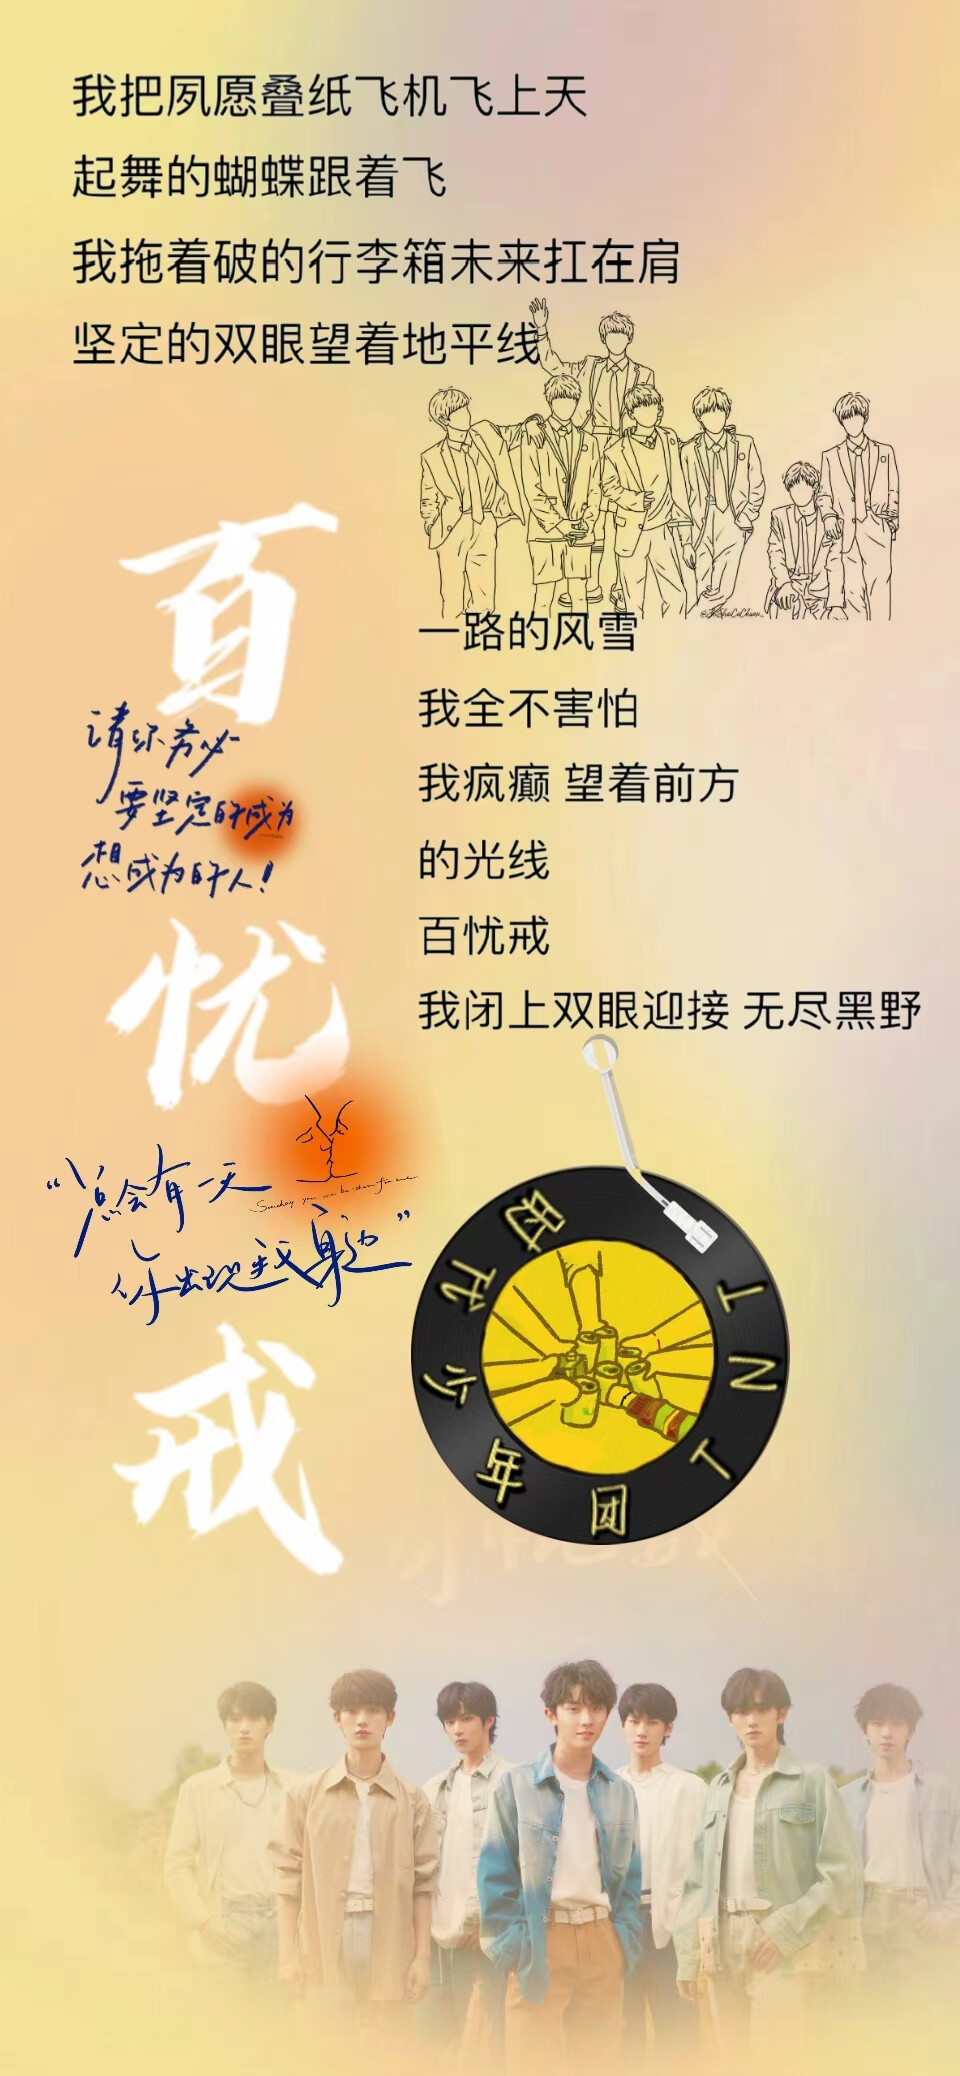 我把夙愿叠纸飞机飞上天
起舞的蝴蝶跟着飞
我拖着破的行李箱未来扛在肩
坚定的双眼望着地平线
一路的风雪
我全不害怕
我疯癫 望着前方
的光线
百忧戒
我闭上双眼迎接 无尽黑野
百忧戒
请你务必
要坚定的成为
想成为的人！
“总会有一天
你出现我身边”
Someday you will be there for me
时代少年团 TNT